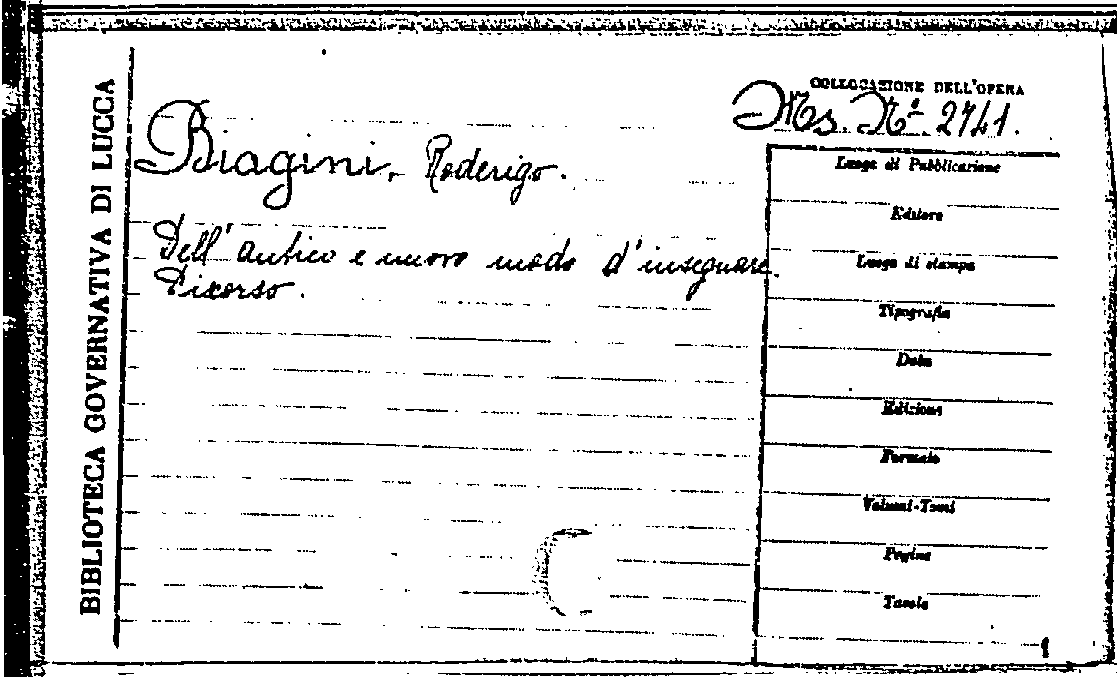 BIBLIOTECA GOVERNATIVA DI LUCCA
COLLOCAZIONE DELL'OPERA
Ms. Nº. 2741.
Biagini, Roderigo.
Dell'antico e nuovo modo d'insegnare.
Dicorso.
Luogo di Pubblicazione
Editore
Luogo di stampa
Tipografia
Data
Edizione
Formato
Volumi-Tomi
Pagine
Tavole